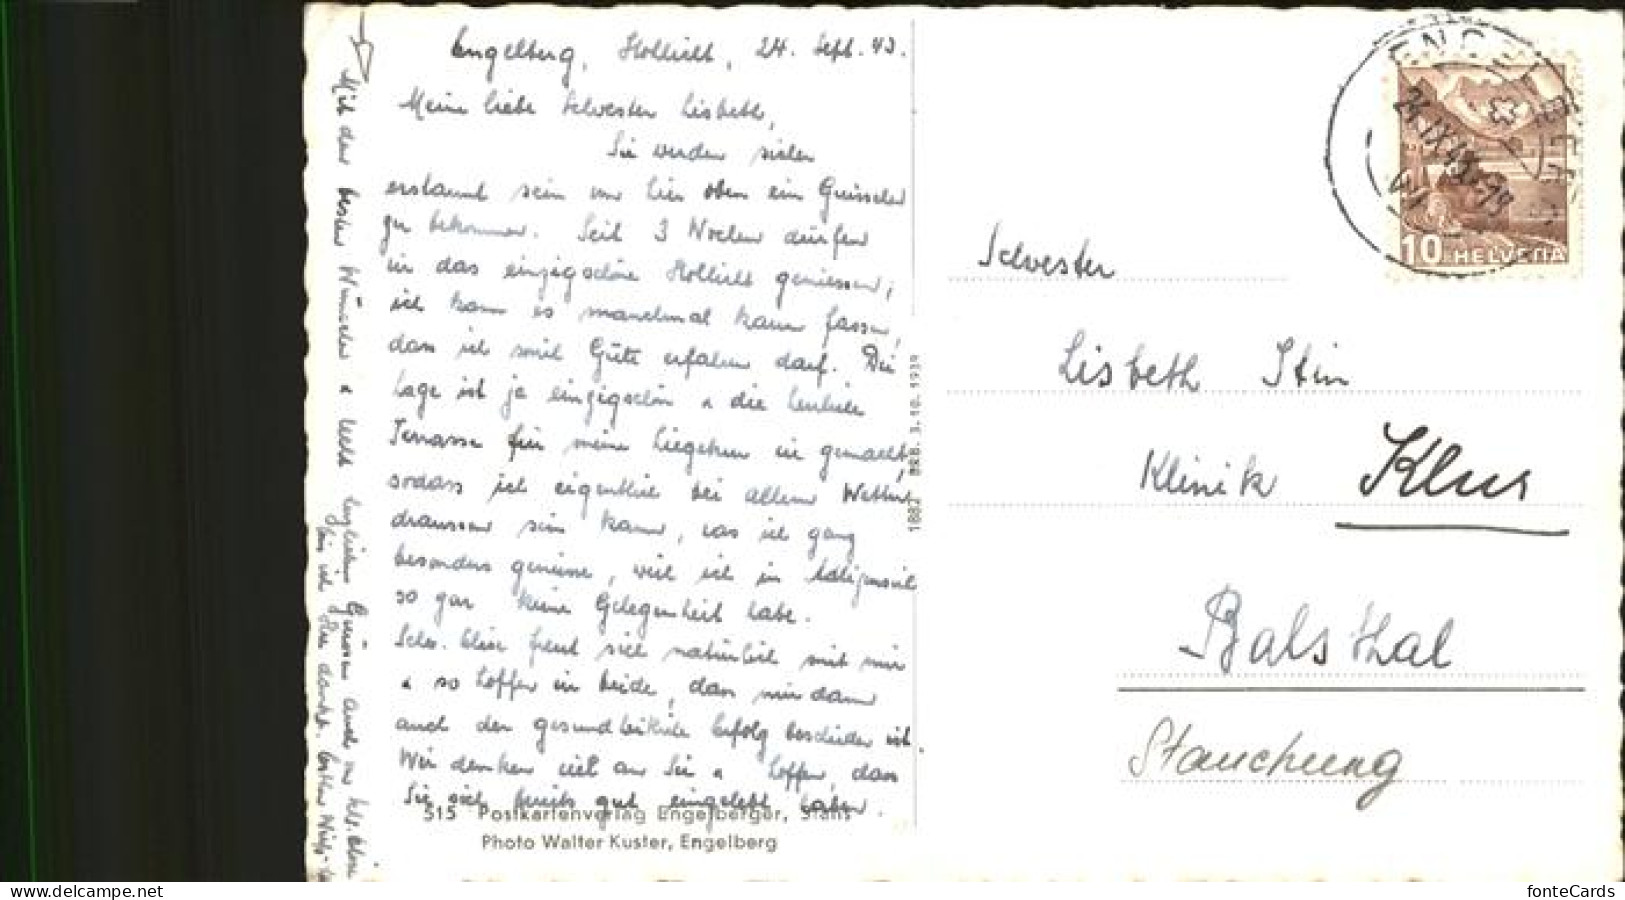 Engelberg, Hotliált, 24. Sept. 43.
Meine liebe Schwester Lisbeth,
Sie werden sicher
erstaunt sein von hier oben ein Grüsschen
zu bekommen. Seit 3 Wochen dürfen
wir das einzigschöne geniessen,
ich kann es manchmal kaum fassen,
dass ich soviel Güte erfahren darf. Die
Lage ist ja einzigschön & die
Terrasse für meine Liegekur wie gemacht,
sodass ich eigentlich bei allem Wetter
draussen sein kann, was ich ganz
besonders geniesse, weil ich in
so gar keine Gelegenheit habe.
Schw. Elise freut sich natürlich mit mir
& so hoffen wir beide, dass mir dann
auch der gesundheitliche Erfolg beschieden ist.
Wir denken viel an Sie & hoffen, dass
Sie sich bereits gut eingelebt haben.
Mit den besten Wünschen & herzlichen Grüssen auch von Schw. Elise
bin ich Ihre dankb.
515 Postkartenverlag Engelberger, Stans
Photo Walter Kuster, Engelberg
1882 BRB. 3.10.1939
ENGELBERG
24.IX.43.-19
10 HELVETIA
Schwester
Lisbeth Stin
Klinik Klus
Balsthal
Stauchung
www.delcampe.net
fonteCards